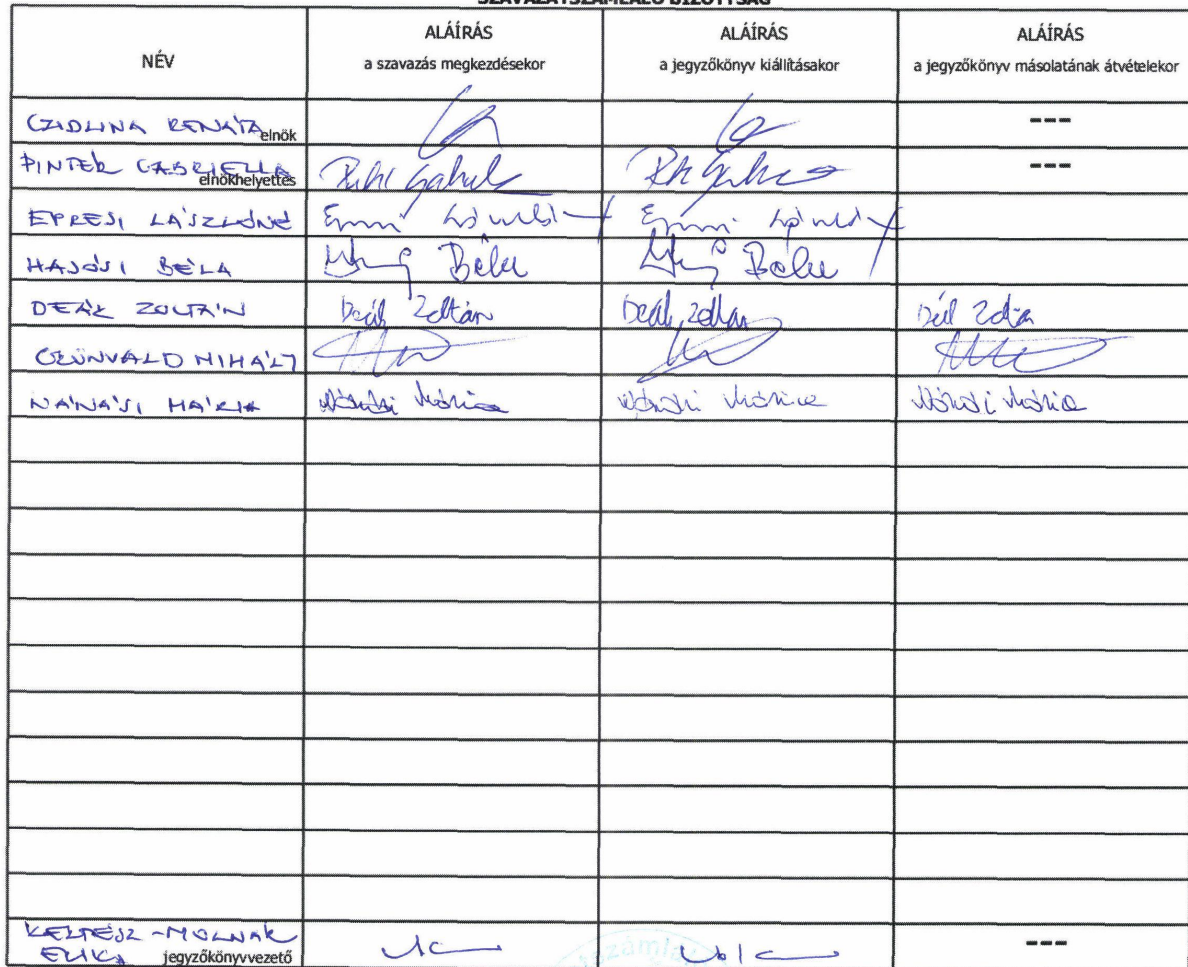 SZAVAZATSZÁMLÁLÓ BIZOTTSÁG
NÉV
ALÁÍRÁS
a szavazás megkezdésekor
ALÁÍRÁS
a jegyzőkönyv kiállításakor
ALÁÍRÁS
a jegyzőkönyv másolatának átvételekor
CZIDLINA RENÁTA elnök
---
PINTÉR GABRIELLA
elnökhelyettes
---
EPRESI LÁSZLÓNÉ
HAJÓSI BÉLA Béla Béla
DEÁK ZOLTÁN Deák Zoltán Deák Zoltán Deák Zoltán
GRÜNVALD MIHÁLY
NÁNÁSI MÁRIA Nánási Mária Nánási Mária Nánási Mária
KERTÉSZ-MOLNÁR
ERIKA jegyzőkönyvvezető
---